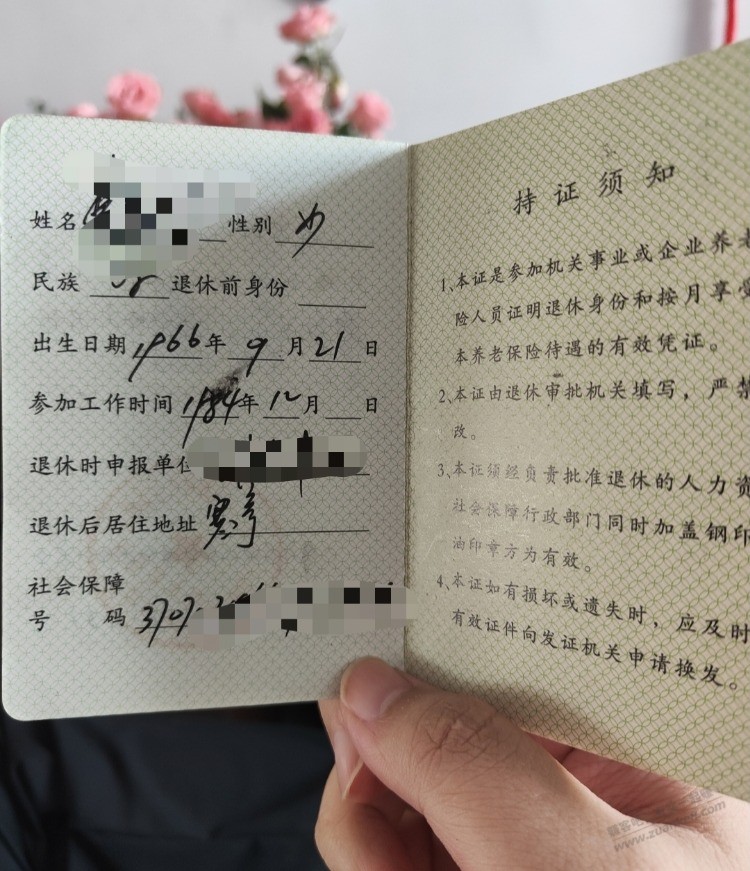 姓名 性别 女
民族 退休前身份
出生日期 1966年 9月21日
参加工作时间 1984年12月 日
退休时申报单位
退休后居住地址 寒亭
社会保障
号 码 3707
持证须知
1、本证是参加机关事业或企业养老
险人员证明退休身份和按月享受
本养老保险待遇的有效凭证。
2、本证由退休审批机关填写，严禁
改。
3、本证须经负责批准退休的人力资
社会保障行政部门同时加盖钢印
油印章方为有效。
4、本证如有损坏或遗失时，应及时
有效证件向发证机关申请换发。